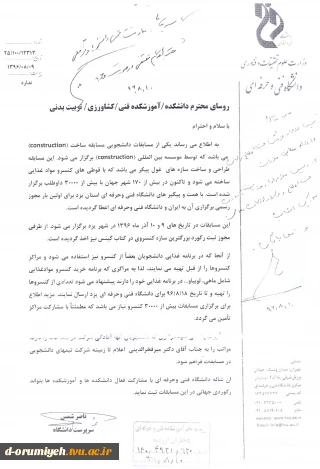 وزارت علوم، تحقیقات و فناوری
دانشگاه فنی و حرفه ای
۲۵/۱۰۰/۱۲۳۱۳
۱۳۹۶/۰۸/۰۹
ندارد
روسای محترم دانشکده/آموزشکده فنی/کشاورزی/تربیت بدنی
با سلام و احترام
به اطلاع می رساند یکی از مسابقات دانشجویی مسابقه ساخت (construction)
می باشد که توسط موسسه بین المللی (construction) برگزار می شود. این مسابقه
طراحی و ساخت سازه های غول پیکر می باشد که با قوطی های کنسرو مواد غذایی
ساخته می شود و تاکنون در بیش از ۱۷۰ شهر جهان با بیش از ۳۰۰۰۰ داوطلب برگزار
شده است. با همت و پیگیر های دانشگاه فنی و حرفه ای استان یزد برای اولین بار مجوز
رسمی برگزاری آن به ایران و دانشگاه فنی و حرفه ای اعطا گردیده است.
این مسابقات در تاریخ های ۹ و ۱۰ آذر ماه ۱۳۹۶ در شهر یزد برگزار می شود. از طرفی
مجوز ثبت رکورد بزرگترین سازه کنسروی در کتاب گینس نیز اخذ گردیده است.
از آنجا که در برنامه غذایی دانشجویان بعضاً از کنسرو نیز استفاده می شود و مراکز
کنسروها را از قبل تهیه می نمایند، لذا به مراکزی که برنامه خرید کنسرو مواد غذایی
شامل ماهی، لوبیا و.. در برنامه غذایی خود را دارند پیشنهاد می شود تعدادی از کنسروها
را تهیه و تا تاریخ ۹۶/۸/۱۸ برای دانشگاه فنی و حرفه ای یزد ارسال نمایند. مزید اطلاع
برای برگزاری مسابقات بیش از ۳۰۰۰۰ کنسرو نیاز می باشد که مطمئناً با مشارکت مراکز
تأمین می گردد.
مراتب را به جناب آقای دکتر میرفخرالدینی اعلام تا زمینه شرکت تیمهای دانشجویی
در مسابقات فراهم شود.
ان شااله دانشگاه فنی و حرفه ای با مشارکت فعال دانشکده ها و آموزشکده ها بتواند
رکوردی جهانی در این مسابقات ثبت نماید.
ناصر شمس
سرپرست دانشگاه
d-orumiyeh.tvu.ac.ir